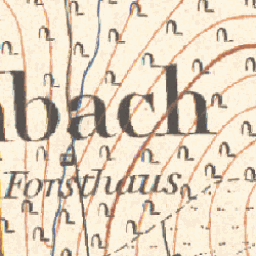 bach
Forsthaus